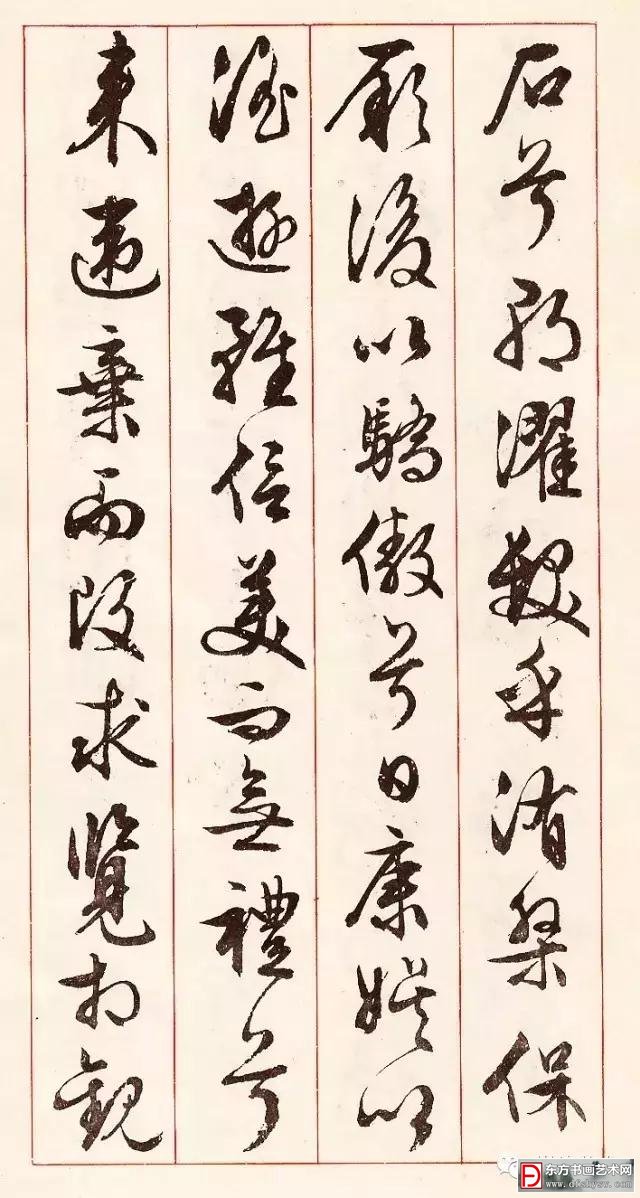 石兮朝濯髮乎洧槃保
厥後以驕傲兮日康娛以
淫遊雖信美而無禮兮
來違棄而改求覽相觀
东方书画艺术网